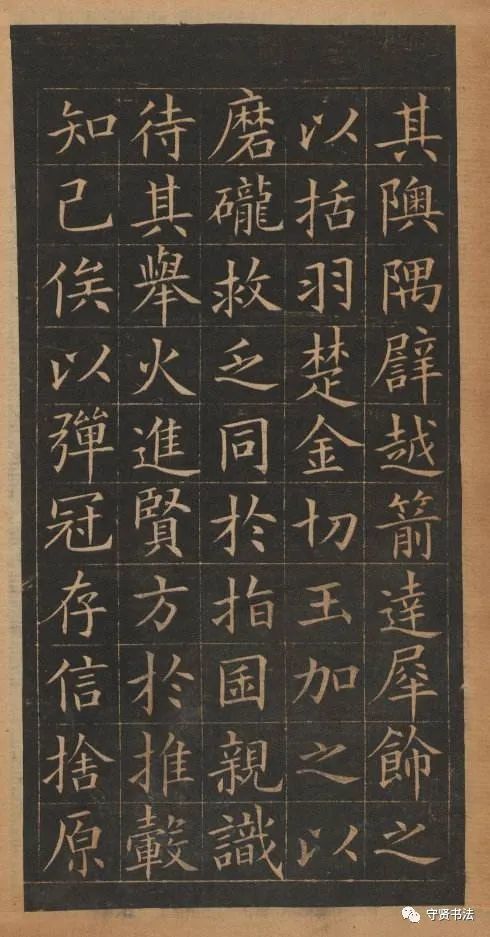 其隩隅譬越箭達犀飾之
以括羽楚金切玉加之以
磨礲救乏同於指囷親識
待其舉火進賢方於推轂
知己俟以彈冠存信捨原
守贤书法